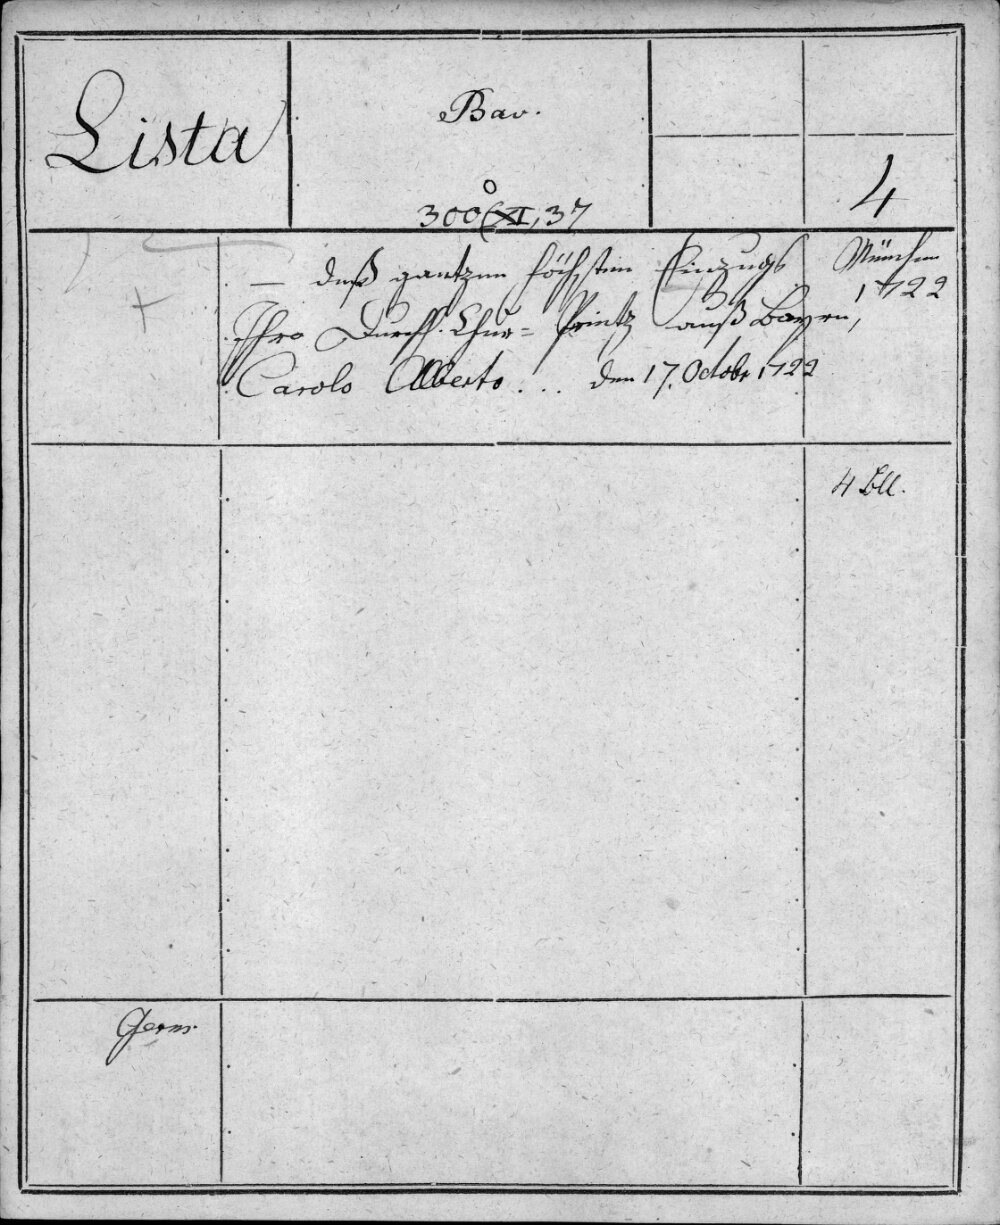 Lista
Bav.
300(XI,37
4
— deß gantzen höchsten Einzugs München
1722
Ihro Durchl. Chur= Printz auß Bayrn,
Carolo Alberto ... den 17. Octobr 1722
4 Bll.
Germ.